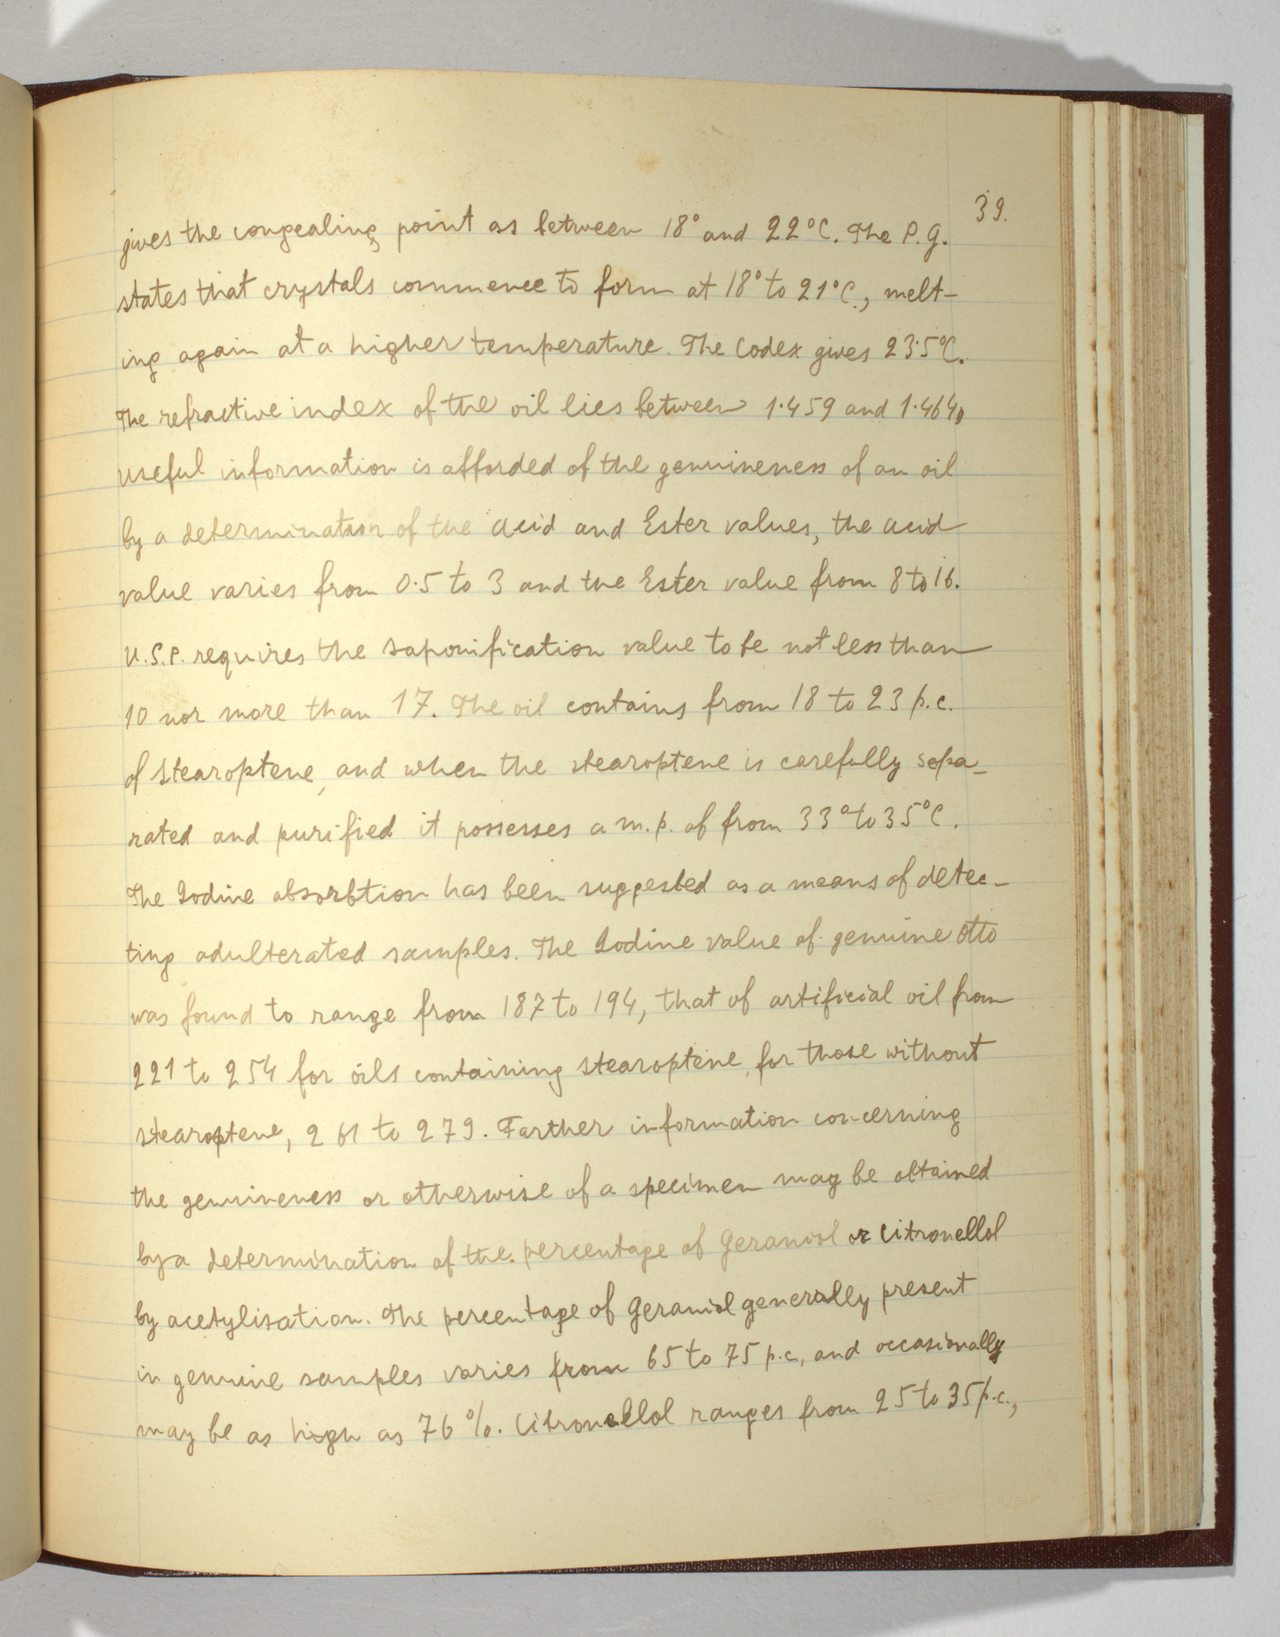 39.
gives the congealing point as between 18° and 22°C. The P.G.
states that crystals commence to form at 18° to 21°C., melt-
ing again at a higher temperature. The Codex gives 23·5°C.
The refractive index of the oil lies between 1·459 and 1·464,
useful information is afforded of the genuineness of an oil
by a determination of the acid and Ester values, the acid
value varies from 0·5 to 3 and the Ester value from 8 to 16.
U.S.P. requires the saponification value to be not less than
10 nor more than 17. The oil contains from 18 to 23 p.c.
of stearoptene, and when the stearoptene is carefully sepa-
rated and purified it possesses a m.p. of from 33° to 35°C.
The Iodine absorbtion has been suggested as a means of detec-
ting adulterated samples. The Iodine value of genuine Otto
was found to range from 187 to 194, that of artificial oil from
221 to 254 for oils containing stearoptene, for those without
stearoptene, 261 to 279. Farther information concerning
the genuineness or otherwise of a specimen may be obtained
by a determination of the percentage of Geraniol or Citronellol
by acetylisation. The percentage of Geraniol generally present
in genuine samples varies from 65 to 75 p.c., and occasionally
may be as high as 76 %. Citronellol ranges from 25 to 35 p.c.,